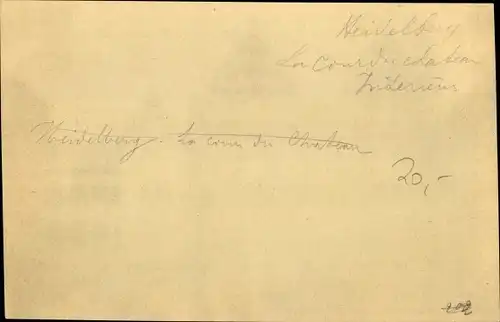 Heidelberg
La Cour du chateau
Intérieur
Heidelberg. La cour du Chateau
20,-